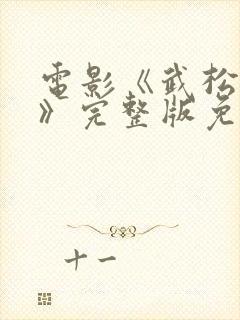 電影《武松
》完整版免
十一